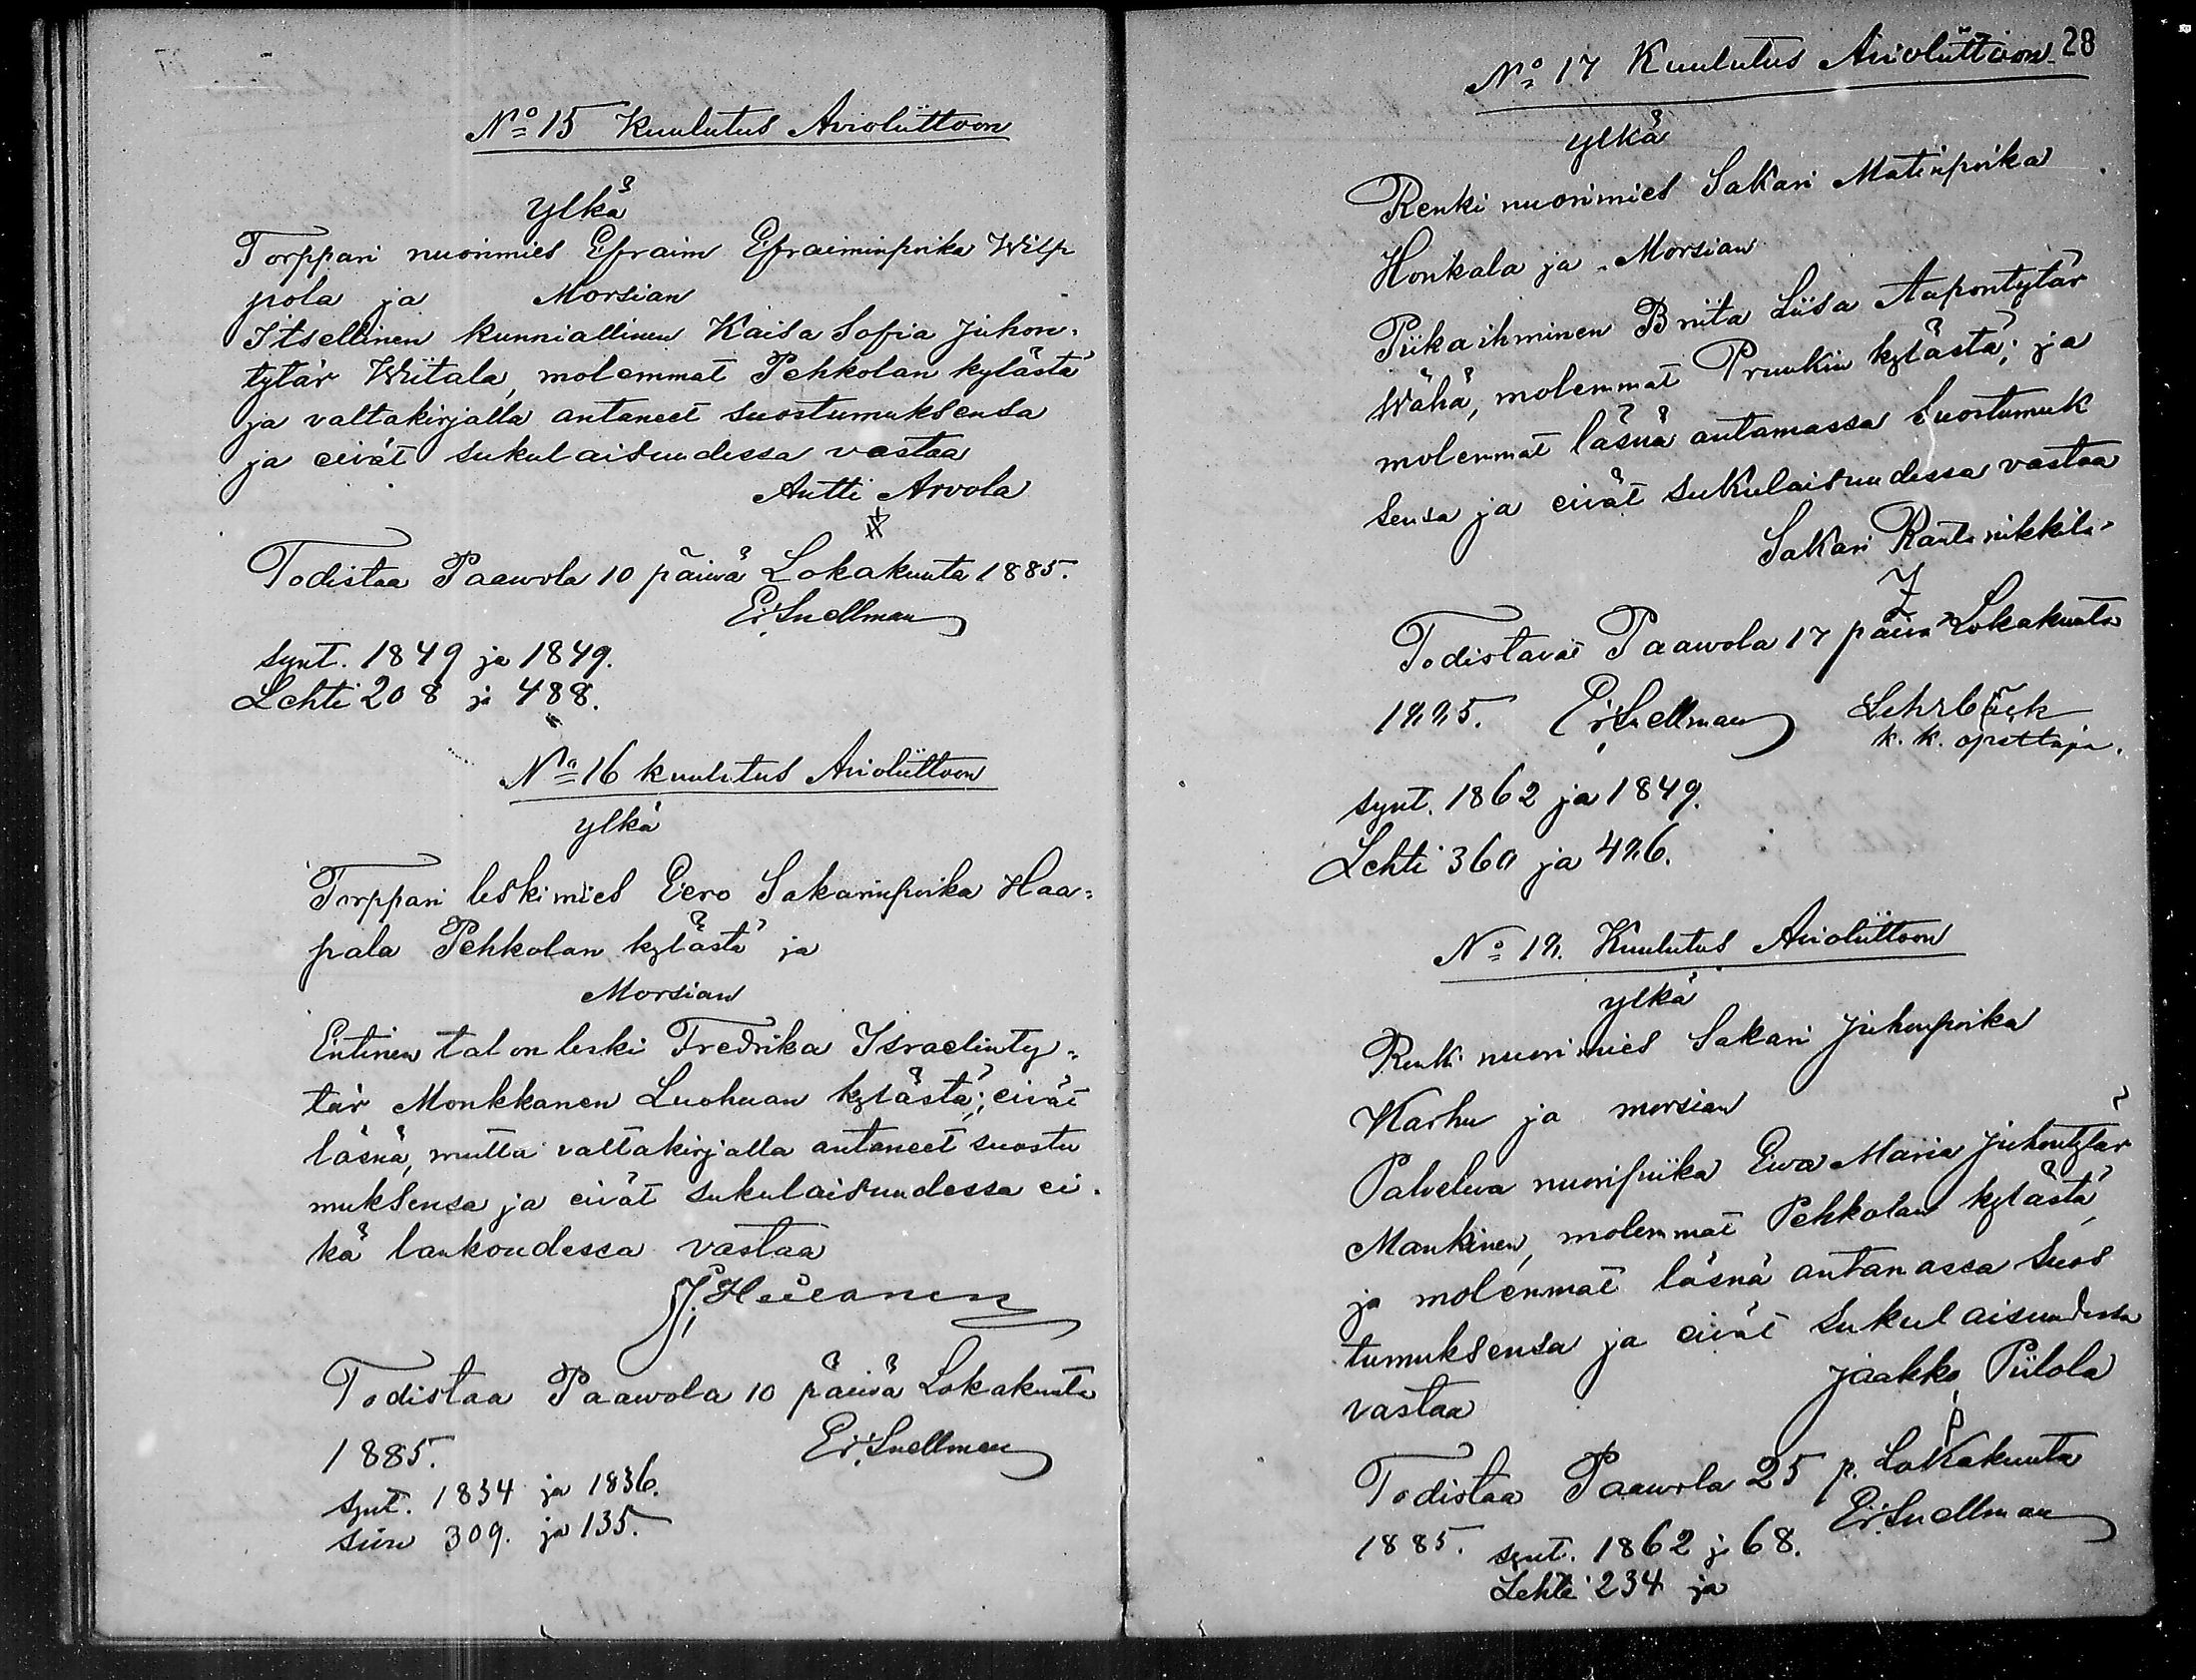 No 15 Kuulutus Avioliittoon
Ylkä
Torppari nuorimies Efraim Efraiminpoika Wilp
pola ja Morsian
Itsellinen kunniallinen Kaisa Sofia Juhon-
tytär Wiitala, molemmat Pehkolan kylästä
ja valtakirjalla antaneet suostumuksensa
ja eivät sukulaisuudessa vastaa
Antti Arvola
Todistaa Paawola 10 päivä Lokakuuta 1885.
Er. Snellman
synt. 1849 ja 1849.
Lehti 208 ja 488.
No 16 kuulutus Avioliittoon
ylkä
Torppari leskimies Eero Sakarinpoika Haa-
pala Pehkolan kylästä ja
Morsian
Entinen talon leski Fredrika Israelinty-
tär Monkkanen Luohuan kylästä; eivät
läsnä, mutta valtakirjalla antaneet suostu
muksensa ja eivät sukulaisuudessa ei-
kä lankoudessa vastaa
Todistaa Paawola 10 päivä Lokakuuta
1885. Er. Snellman
synt. 1834 ja 1836.
sivu 309. ja 135.
28
No 17 Kuulutus Avioliittoon
ylkä
Renki nuorimies Sakari Matinpoika
Honkala ja Morsian
Piika ihminen Briita Liisa Aapontytär
Wähä, molemmat Pruukin kylästä; ja
molemmat läsnä antamassa suostumuk
sensa ja eivät sukulaisuudessa vastaa
Sakari Rantanikkilä
Todistavat Paawola 17 päivä Lokakuuta
1885. Er. Snellman Lehrbäck
k. k. opettaja.
synt. 1862 ja 1849.
Lehti 360 ja 426.
No 18. Kuulutus Avioliittoon
ylkä
Renki nuorimies Sakari Juhonpoika
Karhu ja morsian
Palveleva nuoripiika Ewa Maria Juhontytär
Mankinen, molemmat Pehkolan kylästä
ja molemmat läsnä antamassa suos
tumuksensa ja eivät sukulaisuudessa
vastaa Jaakko Piilola
Todistaa Paawola 25 p. Lokakuuta
1885. Er. Snellman
synt. 1862 j. 68.
Lehti 234 ja